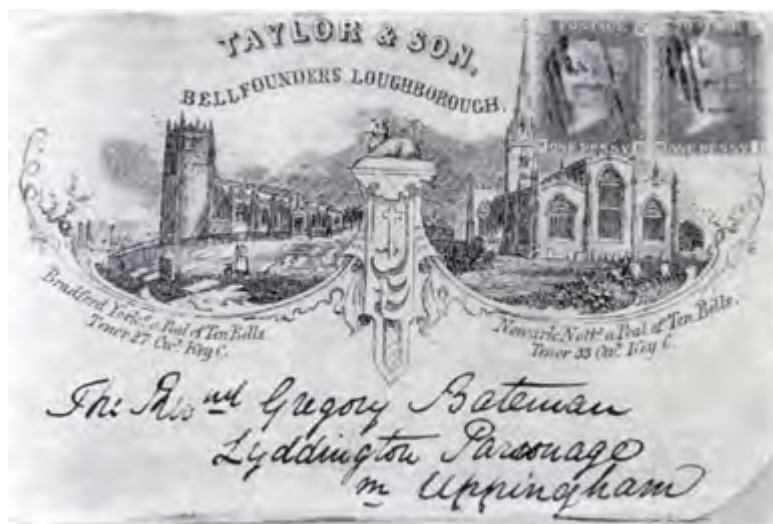 TAYLOR & SON,
BELLFOUNDERS LOUGHBOROUGH.
POSTAGE
ONE PENNY
ONE PENNY
Bradford Yorks. a Peal of Ten Bells.
Tenor 27 Cwt. Key C.
Newark Notts. a Peal of Ten Bells.
Tenor 33 Cwt. Key C.
The Revnd Gregory Bateman
Lyddington Parsonage
nr Uppingham